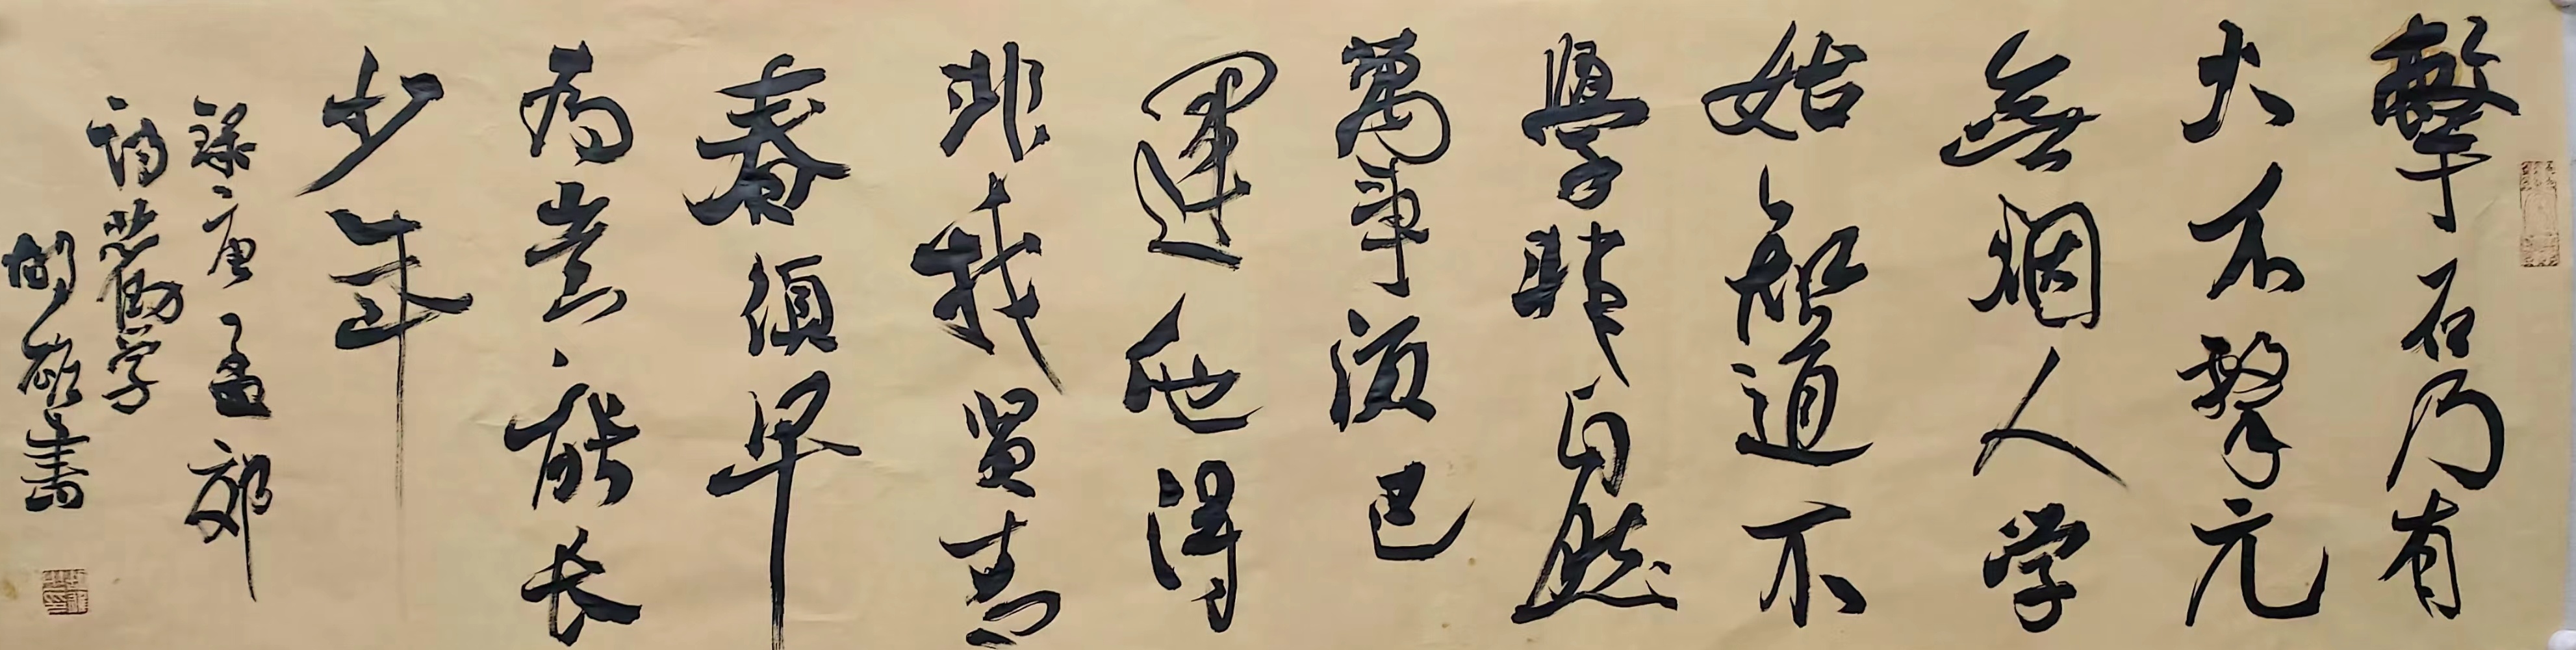 擊石乃有
火不擊元
無烟人学
始知道不
學時自然
萬事須己
運他得
非我賢青
春須早
為岂能长
少年
録唐孟郊
詩劝学
雄書